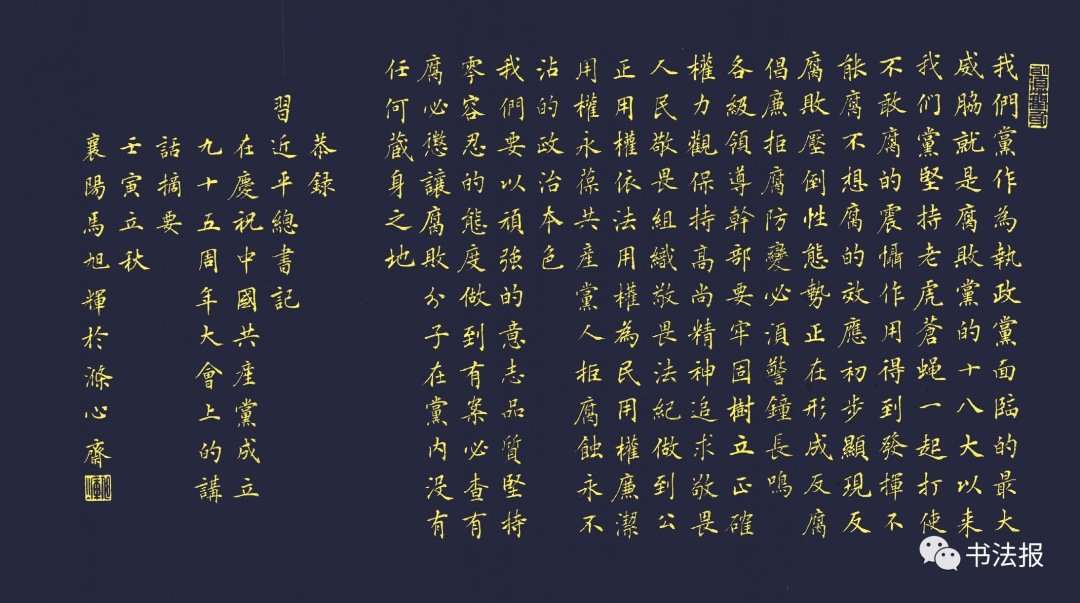 我們黨作為執政黨面臨的最大
威脇就是腐敗黨的十八大以来
我们黨堅持老虎蒼蝇一起打使
不敢腐的震懾作用得到發揮不
能腐不想腐的效應初步顯現反
腐敗壓倒性態勢正在形成反腐
倡廉拒腐防變必須警鐘長鳴
各級領導幹部要牢固樹立正確
權力觀保持高尚精神追求敬畏
人民敬畏組織敬畏法紀做到公
正用權依法用權為民用權廉潔
用權永葆共產黨人拒腐蝕永不
沾的政治本色
我們要以頑強的意志品質堅持
零容忍的態度做到有案必查有
腐必懲讓腐敗分子在黨内没有
任何藏身之地
恭録
習近平總書記
在慶祝中國共產黨成立
九十五周年大會上的講
話摘要
壬寅立秋
襄陽馬旭輝於滌心齋
书法报